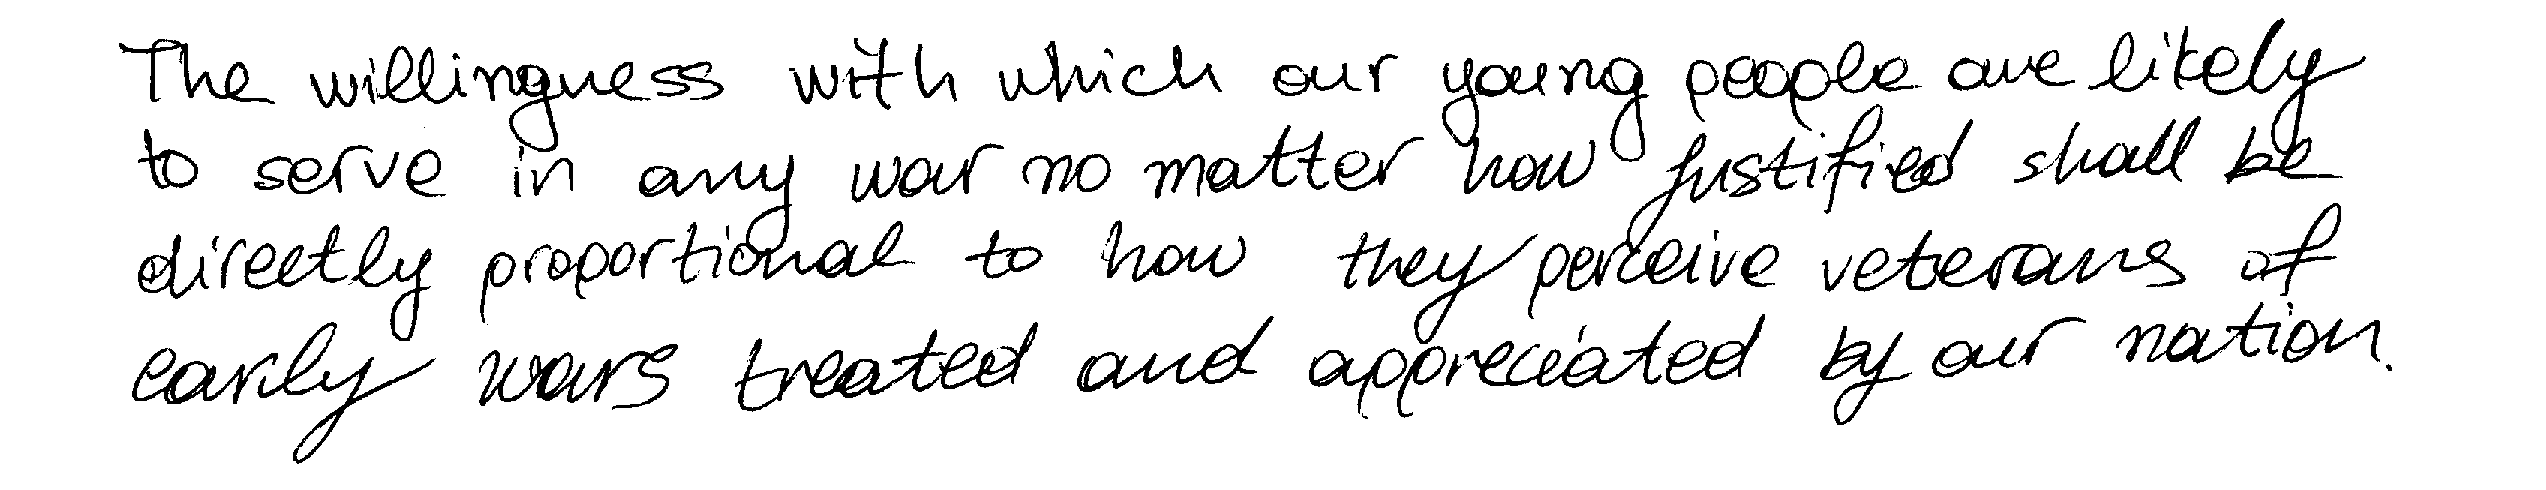 The willingness with which our young people are likely
to serve in any war no matter how justified shall be
directly proportional to how they perceive veterans of
early wars treated and appreciated by our nation.